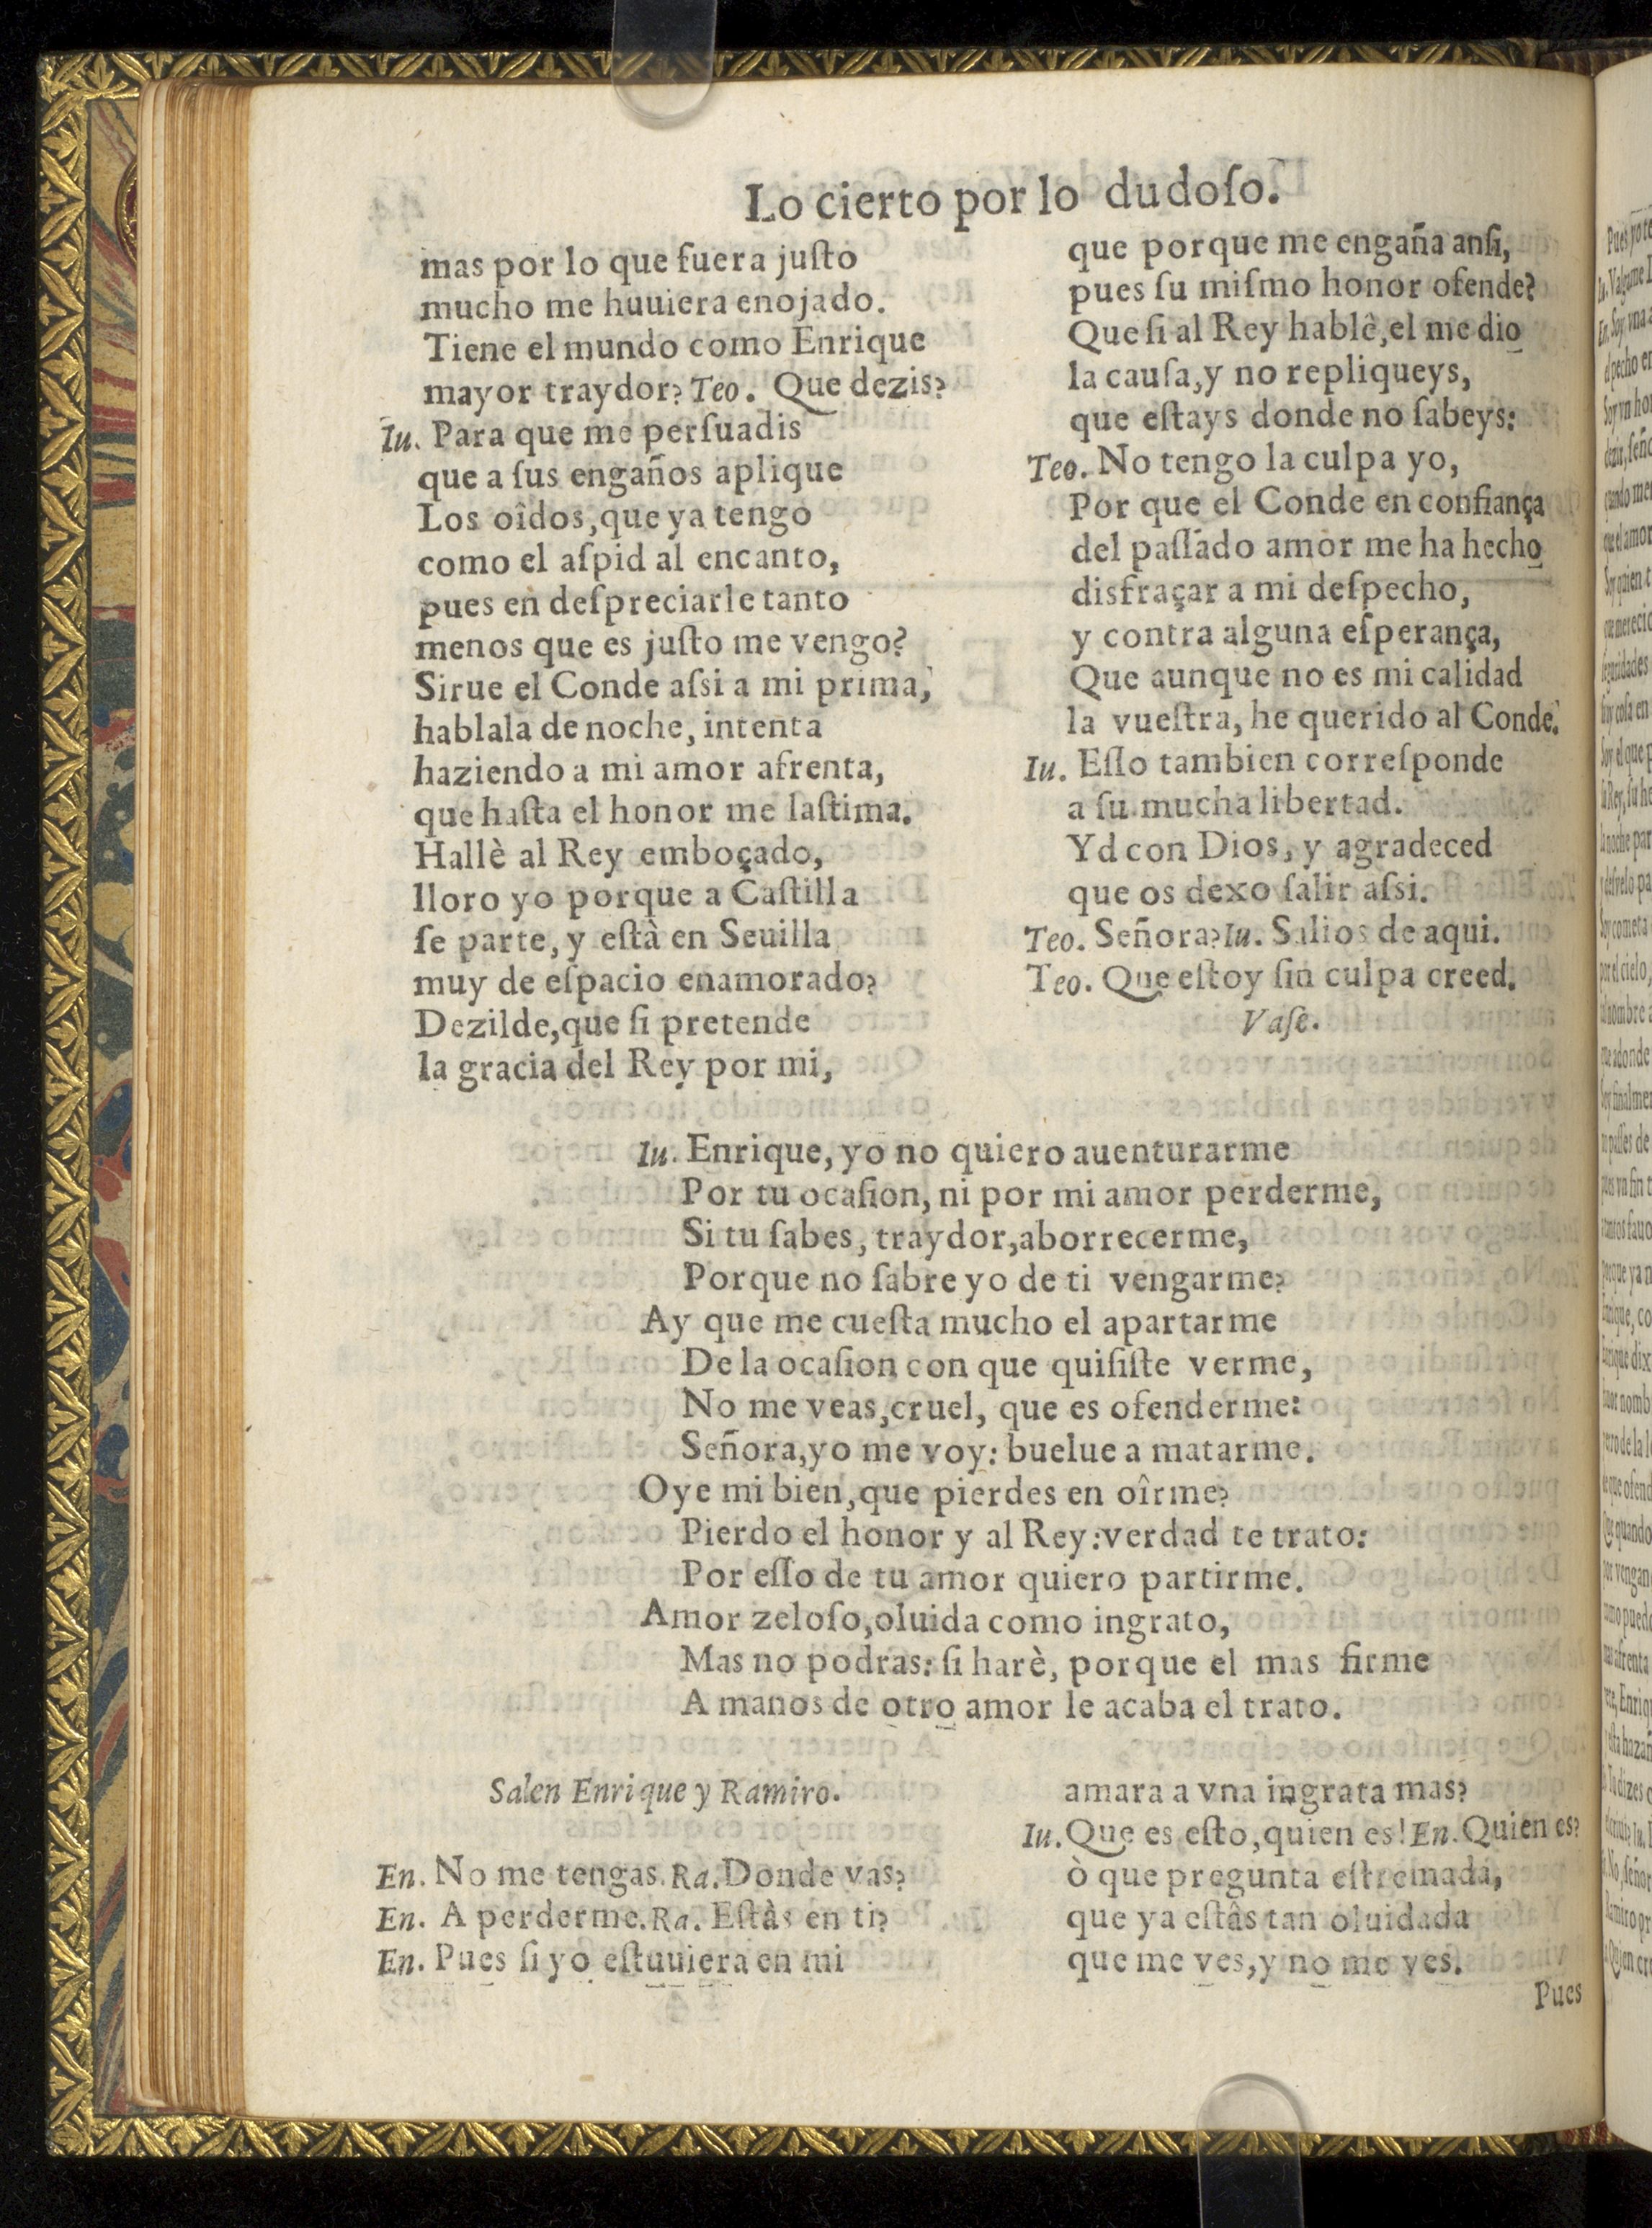 Lo cierto por lo dudoſo.
mas por lo que fuera juſto
mucho me huuiera enojado.
Tiene el mundo como Enrique
mayor traydor? Teo. Que dezis?
Iu. Para que me perſuadis
que a ſus engaños aplique
Los oîdos, que ya tengo
como el aſpid al encanto,
pues en deſpreciarle tanto
menos que es juſto me vengo?
Sirue el Conde aſsi a mi prima,
hablala de noche, intenta
haziendo a mi amor afrenta,
que haſta el honor me laſtima.
Hallè al Rey emboçado,
lloro yo porque a Caſtilla
ſe parte, y eſtà en Seuilla
muy de eſpacio enamorado?
Dezilde, que ſi pretende
la gracia del Rey por mi,
que porque me engaña anſi,
pues ſu miſmo honor ofende?
Que ſi al Rey hablè, el me dio
la cauſa, y no repliqueys,
que eſtays donde no ſabeys:
Teo. No tengo la culpa yo,
Por que el Conde en confiança
del paſſado amor me ha hecho
disfraçar a mi deſpecho,
y contra alguna eſperança,
Que aunque no es mi calidad
la vueſtra, he querido al Conde.
Iu. Eſſo tambien correſponde
a ſu mucha libertad.
Yd con Dios, y agradeced
que os dexo ſalir aſsi.
Teo. Señora? Iu. Salios de aqui.
Teo. Que eſtoy ſin culpa creed.
Vaſe.
Iu. Enrique, yo no quiero auenturarme
Por tu ocaſion, ni por mi amor perderme,
Si tu ſabes, traydor, aborrecerme,
Porque no ſabre yo de ti vengarme?
Ay que me cueſta mucho el apartarme
De la ocaſion con que quiſiſte verme,
No me veas, cruel, que es ofenderme:
Señora, yo me voy: buelue a matarme.
Oye mi bien, que pierdes en oîrme?
Pierdo el honor y al Rey: verdad te trato:
Por eſſo de tu amor quiero partirme.
Amor zeloſo, oluida como ingrato,
Mas no podras: ſi harè, porque el mas firme
A manos de otro amor le acaba el trato.
Salen Enrique y Ramiro.
En. No me tengas. Ra. Donde vas?
En. A perderme. Ra. Eſtâs en ti?
En. Pues ſi yo eſtuuiera en mi
amara a vna ingrata mas?
Iu. Que es eſto, quien es! En. Quien es?
ò que pregunta eſtremada,
que ya eſtâs tan oluidada
que me ves, y no me ves.
Pues